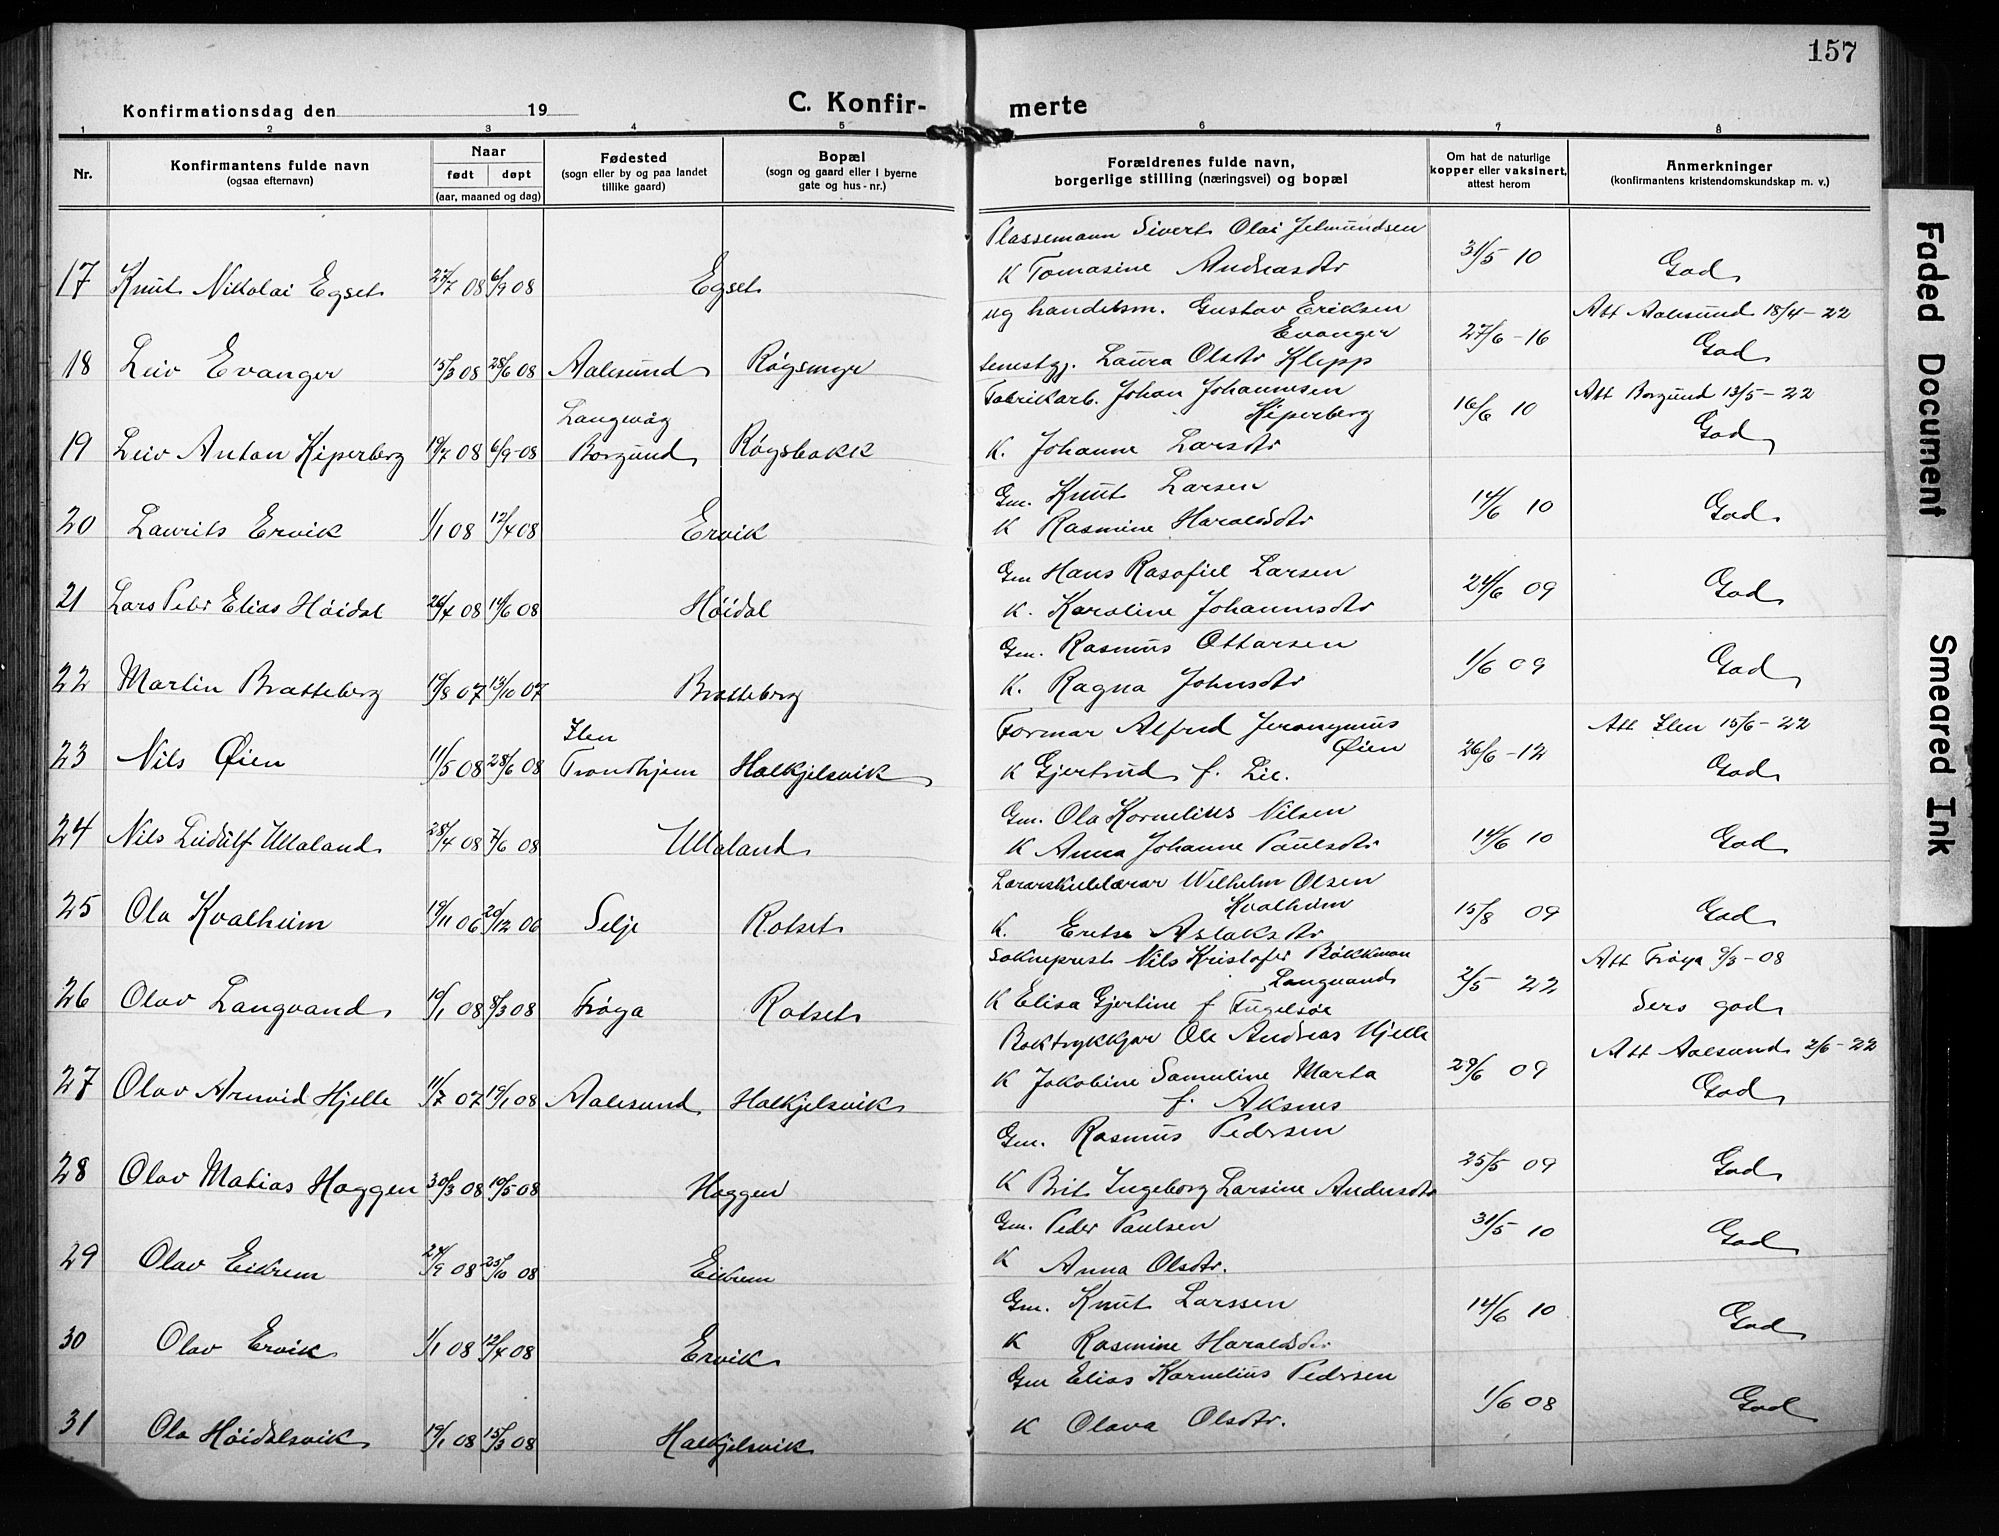 157
C. Konfirmerte
Konfirmationsdag den 19
1 2 3 4 5 6 7 8
Nr.
Konfirmantens fulde navn
(ogsaa efternavn)
Naar
født døpt
(aar, maaned og dag)
Fødested
(sogn eller by og paa landet
tillike gaard)
Bopæl
(sogn og gaard eller i byerne
gate og hus-nr.)
Forældrenes fulde navn,
borgerlige stilling (næringsvei) og bopæl
Om hat de naturlige
kopper eller vaksinert,
attest herom
Anmerkninger
(konfirmantens kristendomskundskap m. v.)
Plassemann Sivert Olai Jetmundsen
17 Knut Nikolai Egset 27/7 08 6/9 08 Egset K Tomasine Andreasdtr 31/5 10 God
ug handelsm. Gustav Eriksen Att Aalesund 18/4-22
Evanger
18 Leiv Evanger 15/3 08 28/6 08 Aalesund Røgsmyr Laura Olsdtr Klepp 27/6-16 God
Fabrikarb. Johan Johannesen Att Borgund 13/5-22
Langevåg Kiperberg
19 Leiv Anton Kiperberg 19/7 08 6/9-08 Borgund Røgsbakk K. Johanne Larsdtr 16/6 10 God
Gm. Knut Larsen
20 Laurits Ervik 1/1 08 12/4 08 Ervik K Rasmine Haraldsdtr 14/6 10 God
Gm Hans Rasafiel Larsen
21 Lars Peter Elias Høidal 26/4 08 14/6 08 Høidal K. Karoline Johannesdtr 24/6 09 God
Gm. Rasmus Ottarsen
22 Martin Bratteberg 19/8 07 13/10 07 Bratteberg K. Ragna Johnsdtr 1/6 09 God
Formar Alfred Jeronymus Att Ilen 15/6-22
Ilen Øien
23 Nils Øien 11/5 08 28/6 08 Trondhjem Halkjelsvik K Gjertrud f. Lie. 26/6-12 God
Gm. Ola Kornelius Nilsen
24 Nils Leidulf Ullaland 28/4 08 7/6 08 Ullaland K Anna Johanne Paulsdtr 14/6 10 God
Lærarskulelærar Wilhelm Olsen
Kvalheim
25 Ola Kvalheim 19/11 06 26/12 06 Selje Rotset K. Aslaksdtr 15/8 09 God
Sokneprest Nils Kristofer Bøkkman Att Frøya 9/3-08
Langvand
26 Olav Langvand 10/1 08 8/3 08 Frøya Rotset K Elisa Gjertine f Fugelsøe 2/5 22 Sers god
Boktrykkjar Ole Andreas Hjelle Att Aalesund 2/6-22
27 Olav Arnvid Hjelle 11/7 07 19/1 08 Aalesund Halkjelsvik K Jakobine Samueline Marta 29/6 09 God
f. Aksnes
Gm. Rasmus Pedersen
28 Olav Matias Haggen 30/3 08 10/5 08 Haggen K Brit Ingeborg Larsine Andersdtr 25/5 09 God
Gm. Peder Paulsen
29 Olav Eikrem 24/9 08 25/10 08 Eikrem K Anna Olsdtr. 31/5 10 God
Gm. Knut Larssen
30 Olav Ervik 1/1 08 12/4 08 Ervik K Rasmine Haraldsdtr 14/6 10 God
Gm Elias Kornelius Pedersen
31 Ola Høidalsvik 19/1 08 15/3 08 Halkjelsvik K Olava Olsdtr. 1/6 08 God
Faded Document
Smeared Ink